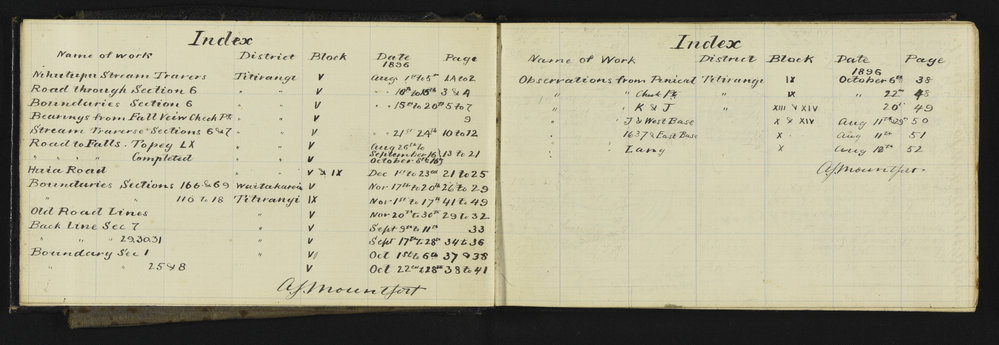 Index
Name of Work District Block Date 1896 Page
Nihutupu Stream Travers Titirangi V Aug 1st to 5th 1A to 2
Road through Section 6 " " V " " 10th to 15th 3 & 4
Boundaries Section 6 " " V " " 15th to 20th 5 to 7
Bearings from Fall View Check Pts 9
Stream Traverse Sections 6 & 7 " " V " " 21st 24th 10 to 12
Road to Falls. Topog LX " " V Aug 25th to September 16 13 to 21
" " " " Completed " " V October 6th to 16
Haia Road " V & IX Dec 1st to 23rd 21 to 25
Boundaries Sections 166 & 69 Waitakarei V Nov 17th to 20th 26 to 29
" " 116 to 18 Titirangi IX Nov 1st to 17th 41 to 49
Old Road Lines " V Nov 20th to 30th 29 to 32
Back Line Sec 7 " V Sept 9th to 11th 33
" " " 29.30.31 " V Sept 17th to 28th 34 to 36
Boundary Sec 1 " V Oct 1st to 6th 37 & 38
" " 25 & 8 V Oct 22nd & 28th 38 to 41
A. J. Mountfort
Index
Name of Work District Block Date 1896 Page
Observations from Pinical Titirangi IX October 6th 38
" " Check Pt " IX " 22nd 48
" " K & J " XIII & XIV 20th 49
" " J & West Base X & XIV Aug 11th 25th 50
" " 1637 & East Base X Aug 11th 51
" " Lang X Aug 18th 52
A. J. Mountfort.